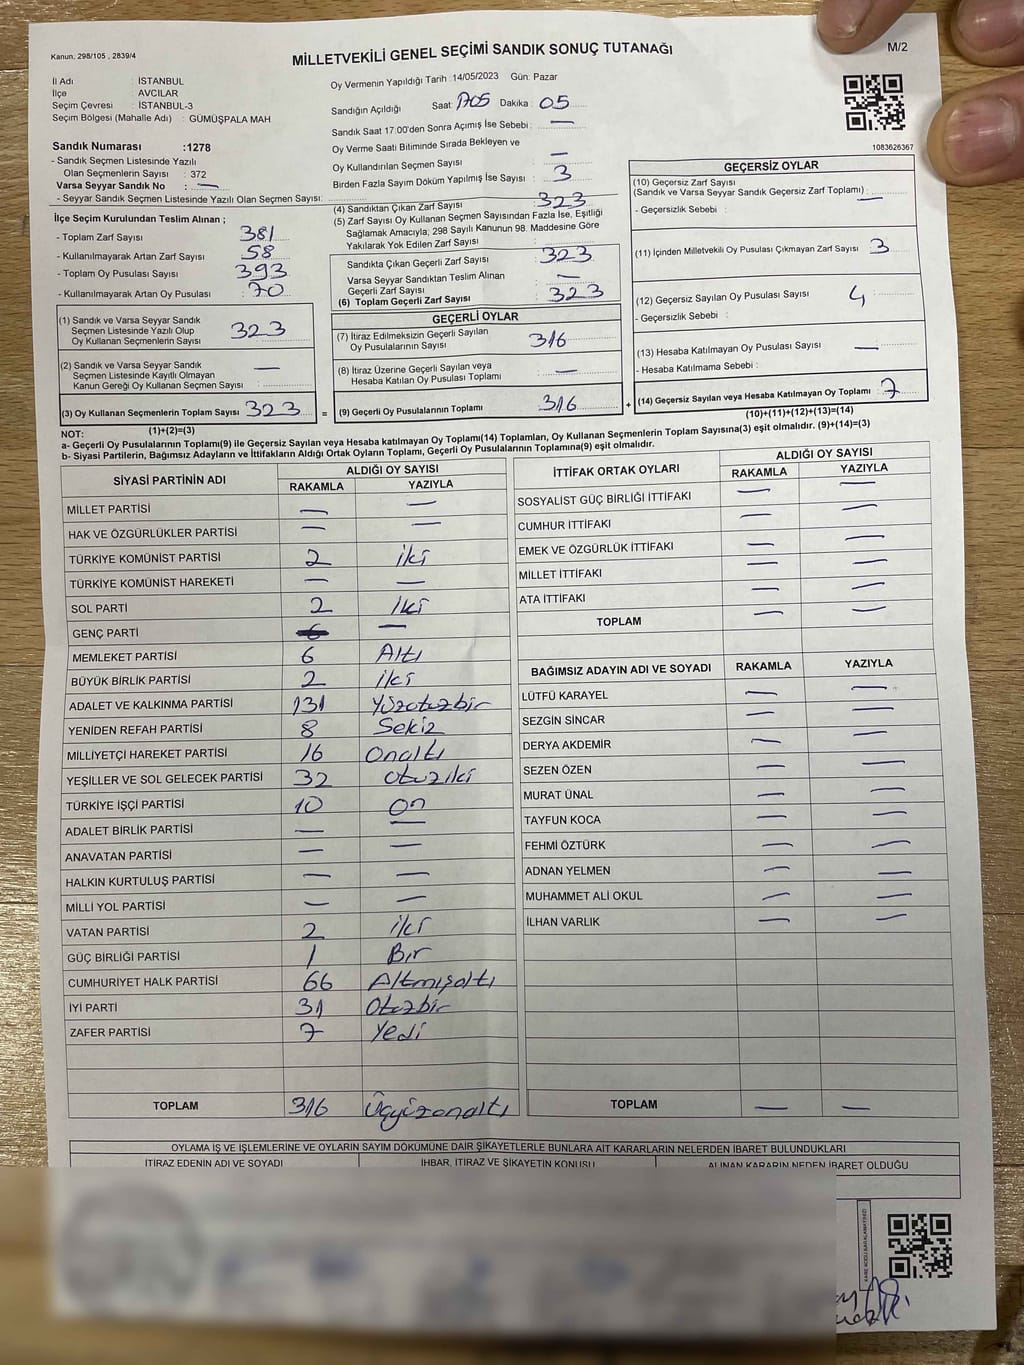 Kanun; 298/105 , 2839/4
MİLLETVEKİLİ GENEL SEÇİMİ SANDIK SONUÇ TUTANAĞI
M/2
İl Adı : İSTANBUL
İlçe : AVCILAR
Seçim Çevresi : İSTANBUL-3
Seçim Bölgesi (Mahalle Adı) : GÜMÜŞPALA MAH
Sandık Numarası :1278
- Sandık Seçmen Listesinde Yazılı
Olan Seçmenlerin Sayısı : 372
Varsa Seyyar Sandık No : —
- Seyyar Sandık Seçmen Listesinde Yazılı Olan Seçmen Sayısı:
Oy Vermenin Yapıldığı Tarih :14/05/2023 Gün: Pazar
Sandığın Açıldığı Saat: 1705 Dakika : 05
Sandık Saat 17:00'den Sonra Açımış İse Sebebi : —
Oy Verme Saati Bitiminde Sırada Bekleyen ve
Oy Kullandırılan Seçmen Sayısı —
Birden Fazla Sayım Döküm Yapılmış İse Sayısı : 3
1083626367
İlçe Seçim Kurulundan Teslim Alınan ;
- Toplam Zarf Sayısı : 381
- Kullanılmayarak Artan Zarf Sayısı : 58
- Toplam Oy Pusulası Sayısı : 393
- Kullanılmayarak Artan Oy Pusulası : 70
(1) Sandık ve Varsa Seyyar Sandık
Seçmen Listesinde Yazılı Olup
Oy Kullanan Seçmenlerin Sayısı : 323
(2) Sandık ve Varsa Seyyar Sandık
Seçmen Listesinde Kayıtlı Olmayan
Kanun Gereği Oy Kullanan Seçmen Sayısı : —
(3) Oy Kullanan Seçmenlerin Toplam Sayısı : 323 =
(1)+(2)=(3)
(4) Sandıktan Çıkan Zarf Sayısı : 323
(5) Zarf Sayısı Oy Kullanan Seçmen Sayısından Fazla İse, Eşitliği
Sağlamak Amacıyla; 298 Sayılı Kanunun 98. Maddesine Göre
Yakılarak Yok Edilen Zarf Sayısı :
Sandıkta Çıkan Geçerli Zarf Sayısı : 323
Varsa Seyyar Sandıktan Teslim Alınan
Geçerli Zarf Sayısı : —
(6) Toplam Geçerli Zarf Sayısı : 323
GEÇERLİ OYLAR
(7) İtiraz Edilmeksizin Geçerli Sayılan
Oy Pusulalarının Sayısı : 316
(8) İtiraz Üzerine Geçerli Sayılan veya
Hesaba Katılan Oy Pusulası Toplamı : —
(9) Geçerli Oy Pusulalarının Toplamı : 316 +
GEÇERSİZ OYLAR
(10) Geçersiz Zarf Sayısı
(Sandık ve Varsa Seyyar Sandık Geçersiz Zarf Toplamı) : —
- Geçersizlik Sebebi :
(11) İçinden Milletvekili Oy Pusulası Çıkmayan Zarf Sayısı : 3
(12) Geçersiz Sayılan Oy Pusulası Sayısı : 4
- Geçersizlik Sebebi :
(13) Hesaba Katılmayan Oy Pusulası Sayısı : —
- Hesaba Katılmama Sebebi :
(14) Geçersiz Sayılan veya Hesaba Katılmayan Oy Toplamı : 7
(10)+(11)+(12)+(13)=(14)
NOT:
a- Geçerli Oy Pusulalarının Toplamı(9) ile Geçersiz Sayılan veya Hesaba katılmayan Oy Toplamı(14) Toplamları, Oy Kullanan Seçmenlerin Toplam Sayısına(3) eşit olmalıdır. (9)+(14)=(3)
b- Siyasi Partilerin, Bağımsız Adayların ve İttifakların Aldığı Ortak Oyların Toplamı, Geçerli Oy Pusulalarının Toplamına(9) eşit olmalıdır.
SİYASİ PARTİNİN ADI ALDIĞI OY SAYISI
RAKAMLA YAZIYLA
MİLLET PARTİSİ — —
HAK VE ÖZGÜRLÜKLER PARTİSİ — —
TÜRKİYE KOMÜNİST PARTİSİ 2 iki
TÜRKİYE KOMÜNİST HAREKETİ — —
SOL PARTİ 2 İki
GENÇ PARTİ —
MEMLEKET PARTİSİ 6 Altı
BÜYÜK BİRLİK PARTİSİ 2 iki
ADALET VE KALKINMA PARTİSİ 131 Yüzotuzbir
YENİDEN REFAH PARTİSİ 8 Sekiz
MİLLİYETÇİ HAREKET PARTİSİ 16 Onaltı
YEŞİLLER VE SOL GELECEK PARTİSİ 32 otuziki
TÜRKİYE İŞÇİ PARTİSİ 10 on
ADALET BİRLİK PARTİSİ — —
ANAVATAN PARTİSİ — —
HALKIN KURTULUŞ PARTİSİ — —
MİLLİ YOL PARTİSİ — —
VATAN PARTİSİ 2 iki
GÜÇ BİRLİĞİ PARTİSİ 1 Bir
CUMHURİYET HALK PARTİSİ 66 Altmışaltı
İYİ PARTİ 31 Otuzbir
ZAFER PARTİSİ 7 Yedi
TOPLAM 316 Üçyüzonaltı
İTTİFAK ORTAK OYLARI ALDIĞI OY SAYISI
RAKAMLA YAZIYLA
SOSYALİST GÜÇ BİRLİĞİ İTTİFAKI — —
CUMHUR İTTİFAKI — —
EMEK VE ÖZGÜRLÜK İTTİFAKI — —
MİLLET İTTİFAKI — —
ATA İTTİFAKI — —
TOPLAM — —
BAĞIMSIZ ADAYIN ADI VE SOYADI RAKAMLA YAZIYLA
LÜTFÜ KARAYEL — —
SEZGİN SİNCAR — —
DERYA AKDEMİR — —
SEZEN ÖZEN — —
MURAT ÜNAL — —
TAYFUN KOCA — —
FEHMİ ÖZTÜRK — —
ADNAN YELMEN — —
MUHAMMET ALİ OKUL — —
İLHAN VARLIK — —
TOPLAM — —
OYLAMA İŞ VE İŞLEMLERİNE VE OYLARIN SAYIM DÖKÜMÜNE DAİR ŞİKAYETLERLE BUNLARA AİT KARARLARIN NELERDEN İBARET BULUNDUKLARI
İTİRAZ EDENİN ADI VE SOYADI İHBAR, İTİRAZ VE ŞİKAYETİN KONUSU ALINAN KARARIN NEDEN İBARET OLDUĞU